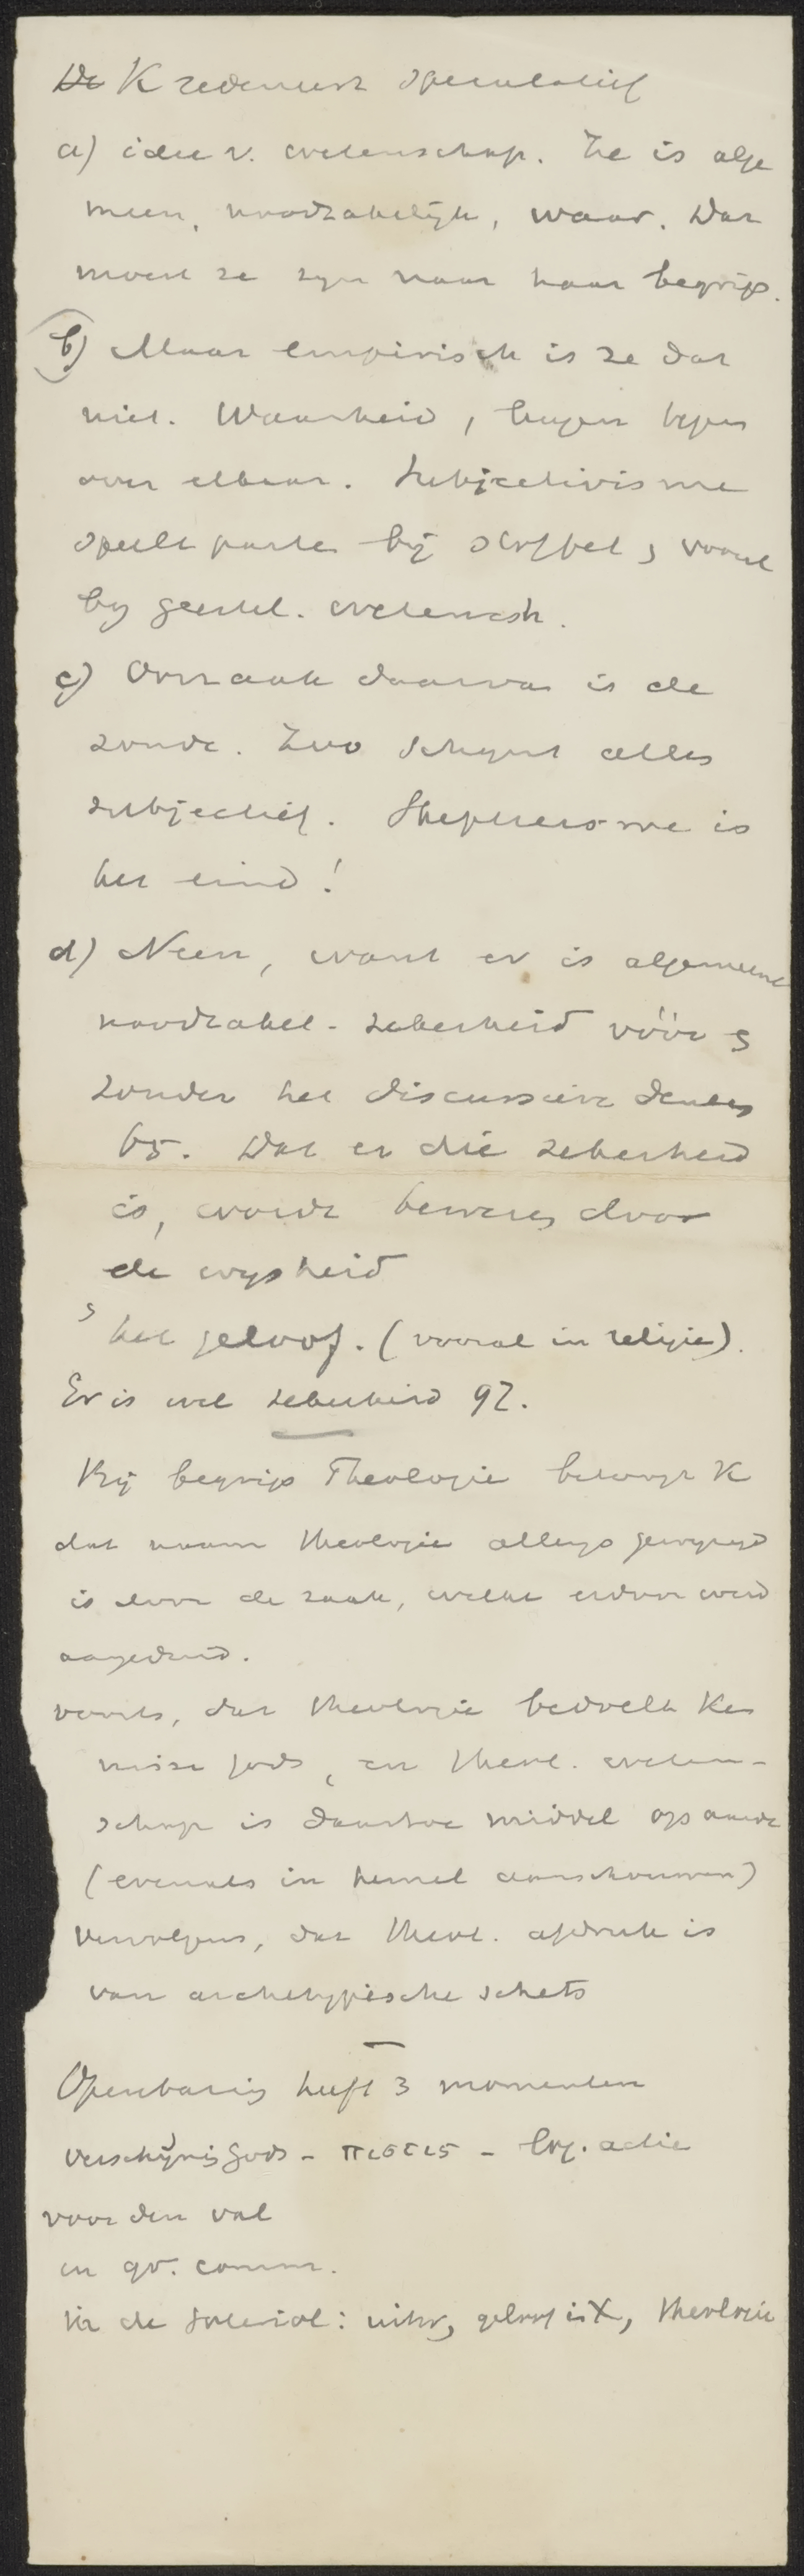 De K redeneert speculatief
a) idee v. wetenschap. Ze is alge
meen, noodzakelijk, waar. Dat
moest ze zijn naar haar begrip.
(b) Maar empirisch is ze dat
niet. Waarheid, leugen
over elkaar. Subjectivisme
speelt parten bij stoffel, vooral
by geestel. wetensch.
c) Oorzaak daarvan is de
zonde. Zoo schynt alles
subjectief. Skepticisme is
het eind!
d) Neen, want er is algemeene
noodzakel. zekerheid vóór en
zonder het discussieve denken
65. Dat er die zekerheid
is, wordt bewezen door
de wysheid
en het geloof. (vooral in religie).
Er is wel zekerheid 92.
Bij begrip Theologie betoogt K
dat naam theologie allengs gewyzigd
is door de zaak, welke erdoor werd
aangeduid.
voorts, dat theologie bedoelt Ken
nisse Gods, en theol. weten-
schap is daartoe middel op aarde
(evenals in hemel aanschouwen)
Vervolgens, dat theol. afdruk is
van archetypische schets
Openbaring heeft 3 momenten
Verschijning Gods - πιστις - log. actie
voor den val
en gr. comm.
In de soteriol: inkr, geloof in X, theologie